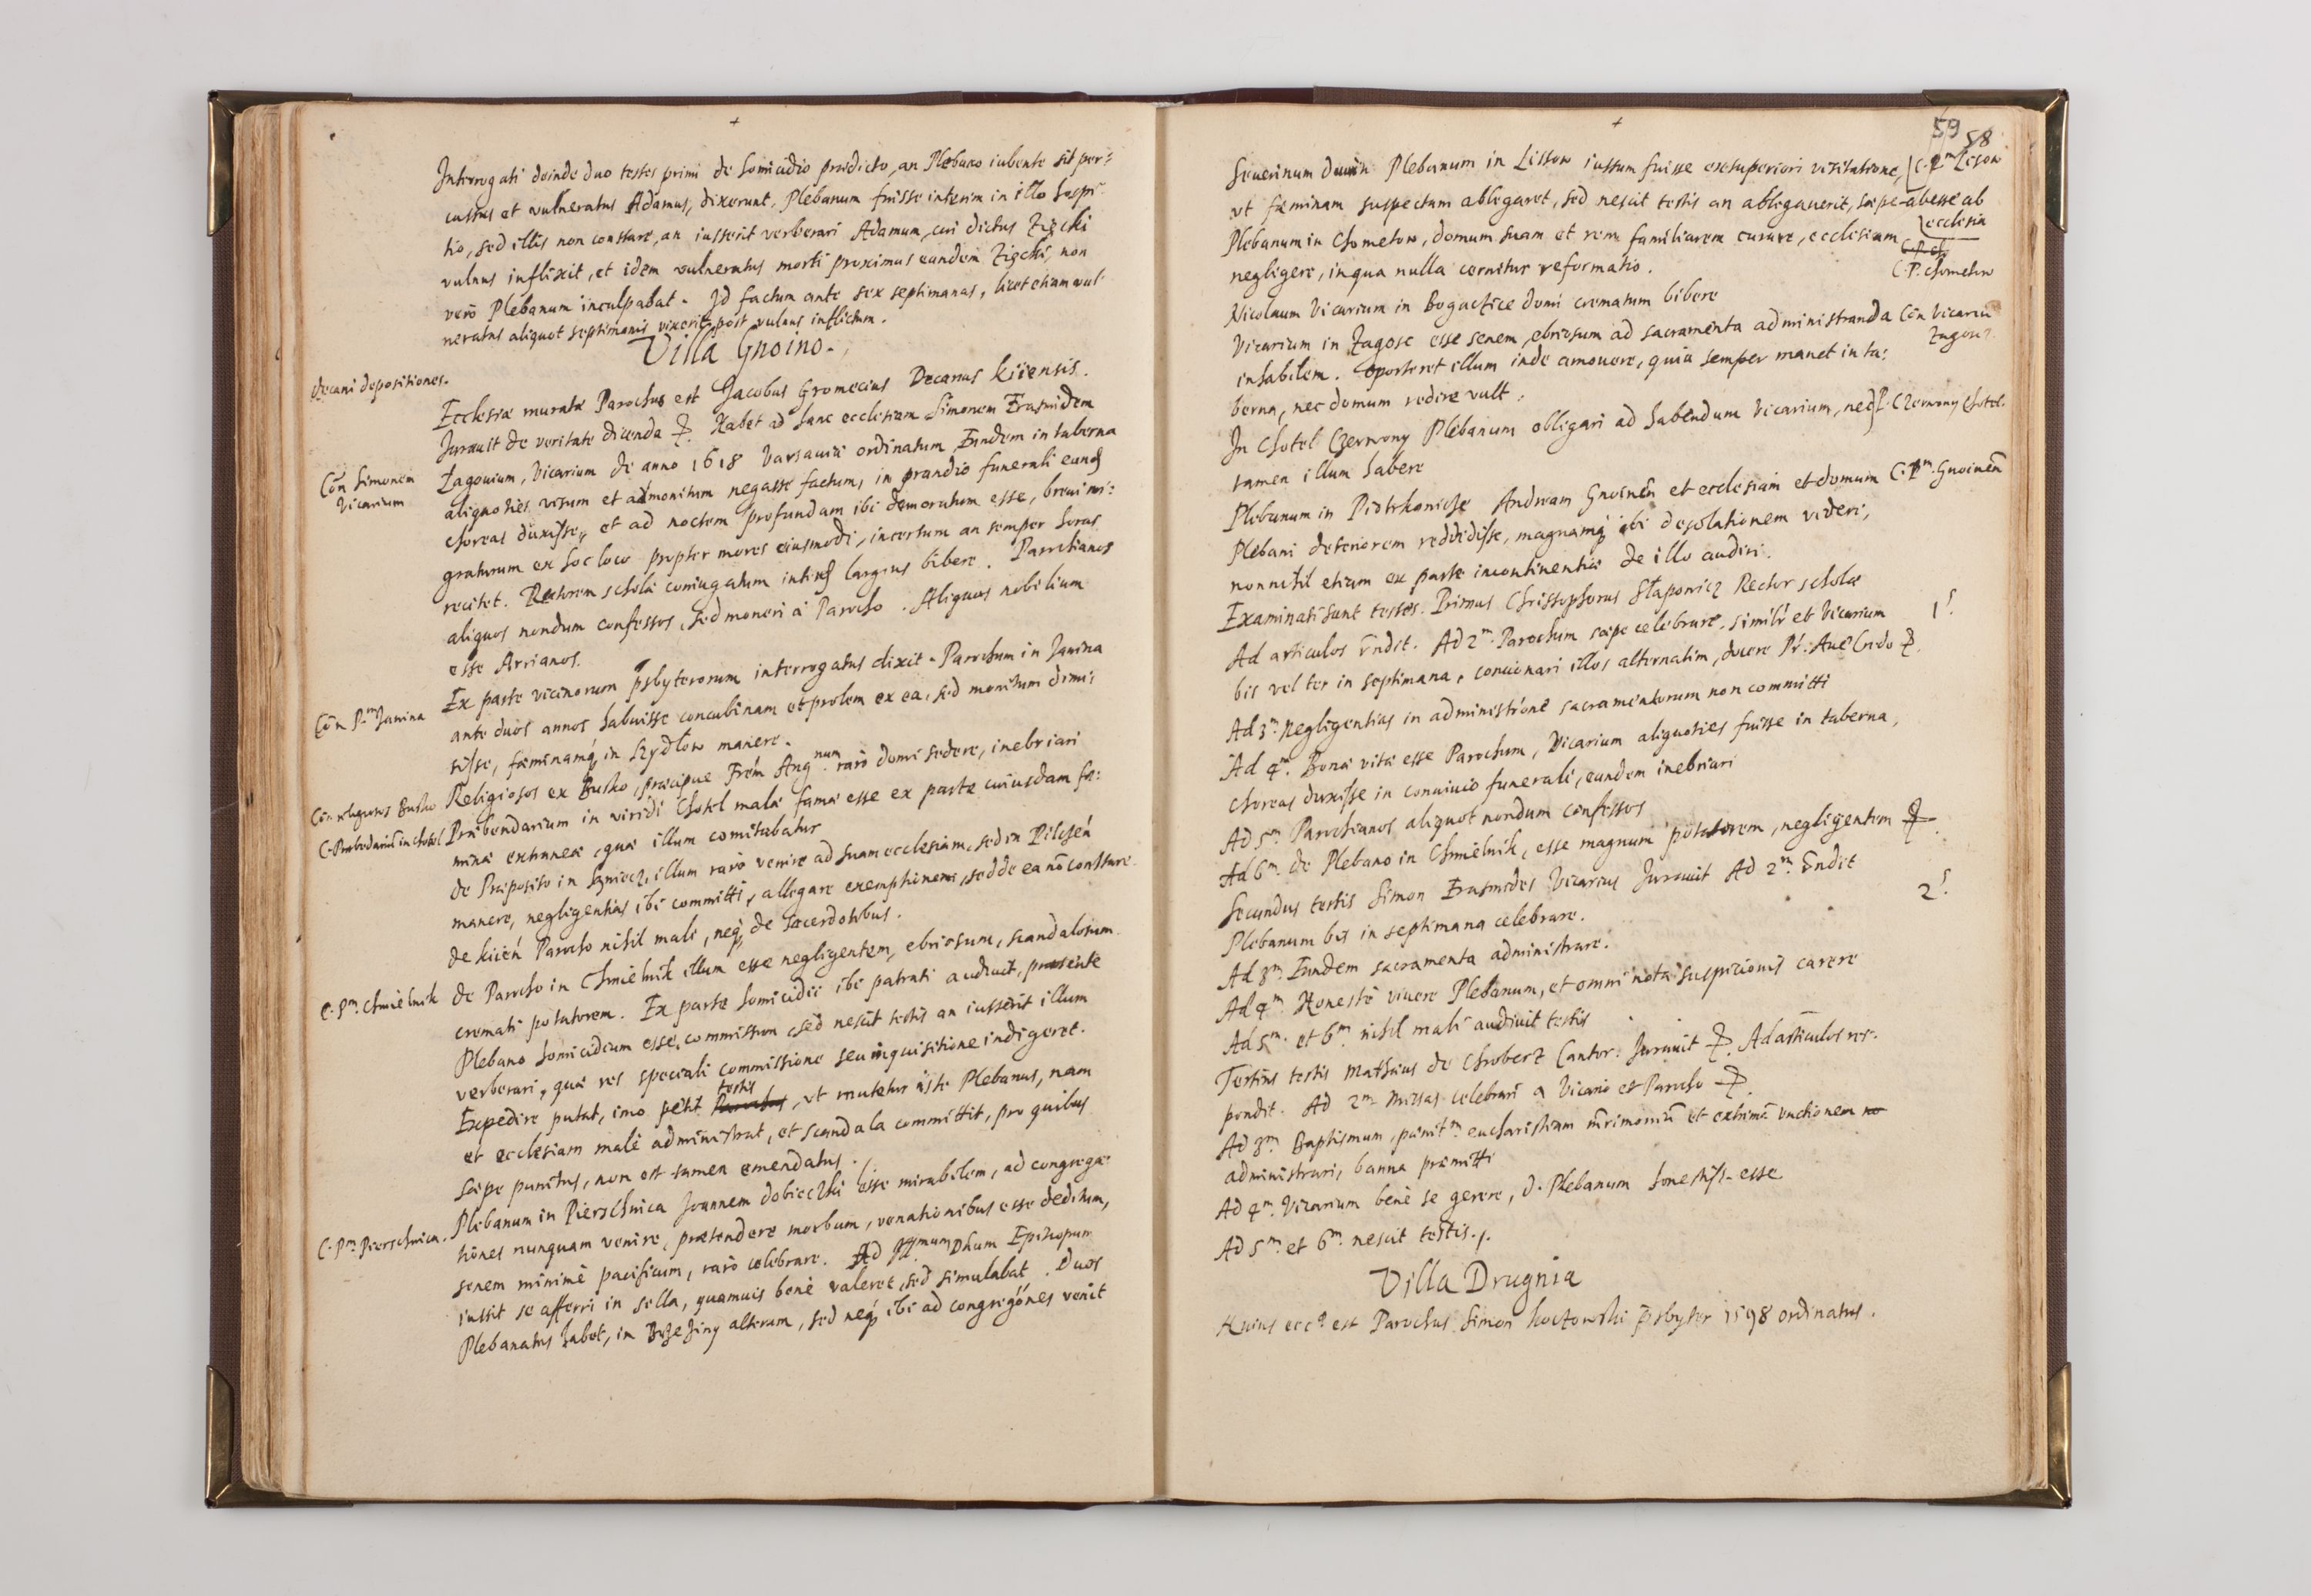 +
Interrogati deinde duo testes primi de homicidio prædicto, an Plebano iubente sit per:
cussus et vulneratus Adamus, dixerunt, Plebanum fuisse interim in illo hospi
tio, sed illis non constare, an iusserit verberari Adamum, cui dictus Zięcki
vulnus inflixit, et idem vulneratus morti proximus eundem Zięcki, non
verò Plebanum inculpabat. Id factum ante sex septimanas, licet etiam vul
neratus aliquot septimanis vixerit post vulnus inflictum.
Villa Gnoino.
Decani depositiones.
Ecclesiæ muratæ Parochus est Jacobus Gromecius Decanus Kiiensis.
Jurauit de veritate dicenda Habet ad hanc ecclesiam Simonem Erasmidem
Con Simonem
Vicarium
Zagouium, Vicarium de anno 1618 Varsauiæ ordinatum, Eundem in taberna
aliquoties visum et admonitum negasse factum, in prandio funerali
choreas duxisse, et ad noctem profundam ibi demoratum esse, breui mi:
graturum ex hoc loco propter mores eiusmodi, incertum an semper horas
recitet. Rectorem scholæ coniugatum largius bibere. Parochianos
aliquos nondum confessos, sed moneri à Parocho. Aliquos nobilium
esse Arrianos.
Con P.m Janina
Ex parte vicinorum psbyterorum interrogatus dixit. Parochum in Janina
ante duos annos habuisse concubinam et prolem ex ea, sed monitum dimi:
sisse, fæminamq in Szydłow manere.
Con religiosos Busko
Religiosos ex Busko, præcipue Frem Aug num rarò domi sedere, inebriari
C. Præbendariū in Chotel
Præbendarium in viridi Chotel malæ famæ esse ex parte cuiusdam fæ:
minæ extraneæ, quæ illum comitabatur
de Præposito in illum rarò venire ad suam ecclesiam, sed in Pilczen
manere, negligentias ibi committi, allegare exemptionem, sed de ea nō constare.
de Kiien Parocho nihil mali, neq de sacerdotibus.
C. Pm. Chmielnik
de Parocho in Chmielnik illum esse negligentem, ebriosum, scandalosum
cremati potatorem. Ex parte homicidii ibi patrati audiuit, præsente
Plebano homicidium esse commissum, sed nescit testis an iusserit illum
verberari, quæ res speciali commissione seu inquisitione indigeret.
Expedire putat, imo petit testis, vt mutetur iste Plebanus, nam
et ecclesiam malè administrat, et scandala committit, pro quibus
sæpe punitus, non est tamen emendatus.
C. Pm. Pierzchnica.
Plebanum in Pierzchnica Joannem dobieczki esse mirabilem, ad congrega
tiones nunquam venire, prætendere morbum, venationibus esse deditum,
senem minimè pacificum, rarò celebrare. Ad Illmum Dnum Episcopum
iussit se afferri in sella, quamuis benè valeret, sed simulabat. Duos
Plebanatus habet, in Brzeziny alterum, sed neq ibi ad congregōnes venit
+
59
58
Seuerinum Plebanum in Lissow iussum fuisse ex superiori visitatione,
C. Pm Lisow
vt fæminam suspectam ablegaret, sed nescit testis an ablegauerit, sæpe abesse ab
ecclesia
Plebanum in Chometow, domum suam et rem familiarem curare, ecclesiam
C. P. Chometow
negligere, in qua nulla cernitur reformatio.
Nicolaum Vicarium in Bogucice domi crematum bibere
Vicarium in Zagosc esse senem, ebriosum ad sacramenta administranda
Con Vicariū
Zagosc
inhabilem. Oporteret illum inde amouere, quia semper manet in ta:
berna, nec domum redire vult.
In Chotel Czerwony Plebanum obligari ad habendum Vicarium, nec
P. Czerwony Chotel.
tamen illum habere
Plebanum in Piotrkowice Andream Gnoinen et ecclesiam et domum
C. Pm. Gnoinen
Plebani deteriorem reddidisse, magnamq ibi desolationem videri,
nonnihil etiam ex parte incontinentiæ de illo audiri.
Examinati sunt testes. Primus Christophorus Staponicz Rector scholæ
1s.
Ad articulos Rndit. Ad 2m. Parochum sæpe celebrare, simili et Vicarium
bis vel ter in septimana, concionari illos alternatim, docere Pr. Aue Credo
Ad 3m. Negligentias in administrōne sacramentorum non committi
Ad 4m. Bonæ vitæ esse Parochum, Vicarium aliquoties fuisse in taberna,
choreas duxisse in conuiuio funerali, eundem inebriari
Ad 5m Parochianos aliquot nondum confessos
Ad 6m. de Plebano in Chmielnik, esse magnum potatorem, negligentem
Secundus testis Simon Erasmides Vicarius Jurauit Ad 2m. Rndit
2s.
Plebanum bis in septimana celebrare.
Ad 3m. Eundem sacramenta administrare.
Ad 4m Honestè viuere Plebanum, et omni nota suspicionis carere
Ad 5m. et 6m nihil mali audiuit testis
Tertius testis Mathias de Chroberz Cantor. Jurauit Ad articulos res.
pondit. Ad 2m Missas celebrari a Vicario et Parocho
Ad 3m Baptismum, pœnitm. eucharistiam mrimoniū et extremā vnctionem
administrari, banna præmitti
Ad 4m. Vicarium benè se gerere, d. Plebanum honestiss. esse
Ad 5m. et 6m. nescit testis.
Villa Drugnia
Huius eccæ est Parochus Simon psbyter 1598 ordinatus.